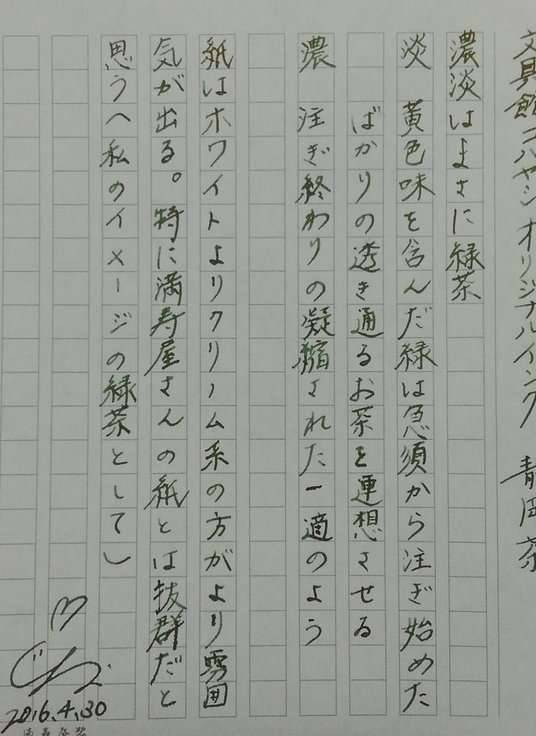 文具館コバヤシオリジナルインク 静岡茶
濃淡はまさに緑茶
淡 黄色味を含んだ緑は急須から注ぎ始めた
ばかりの透き通るお茶を連想させる
濃 注ぎ終わりの凝縮された一滴のよう
紙はホワイトよりクリーム系の方がより雰囲
気が出る。特に満寿屋さんの紙とは抜群だと
思うへ私のイメージの緑茶として)
2016.4.30